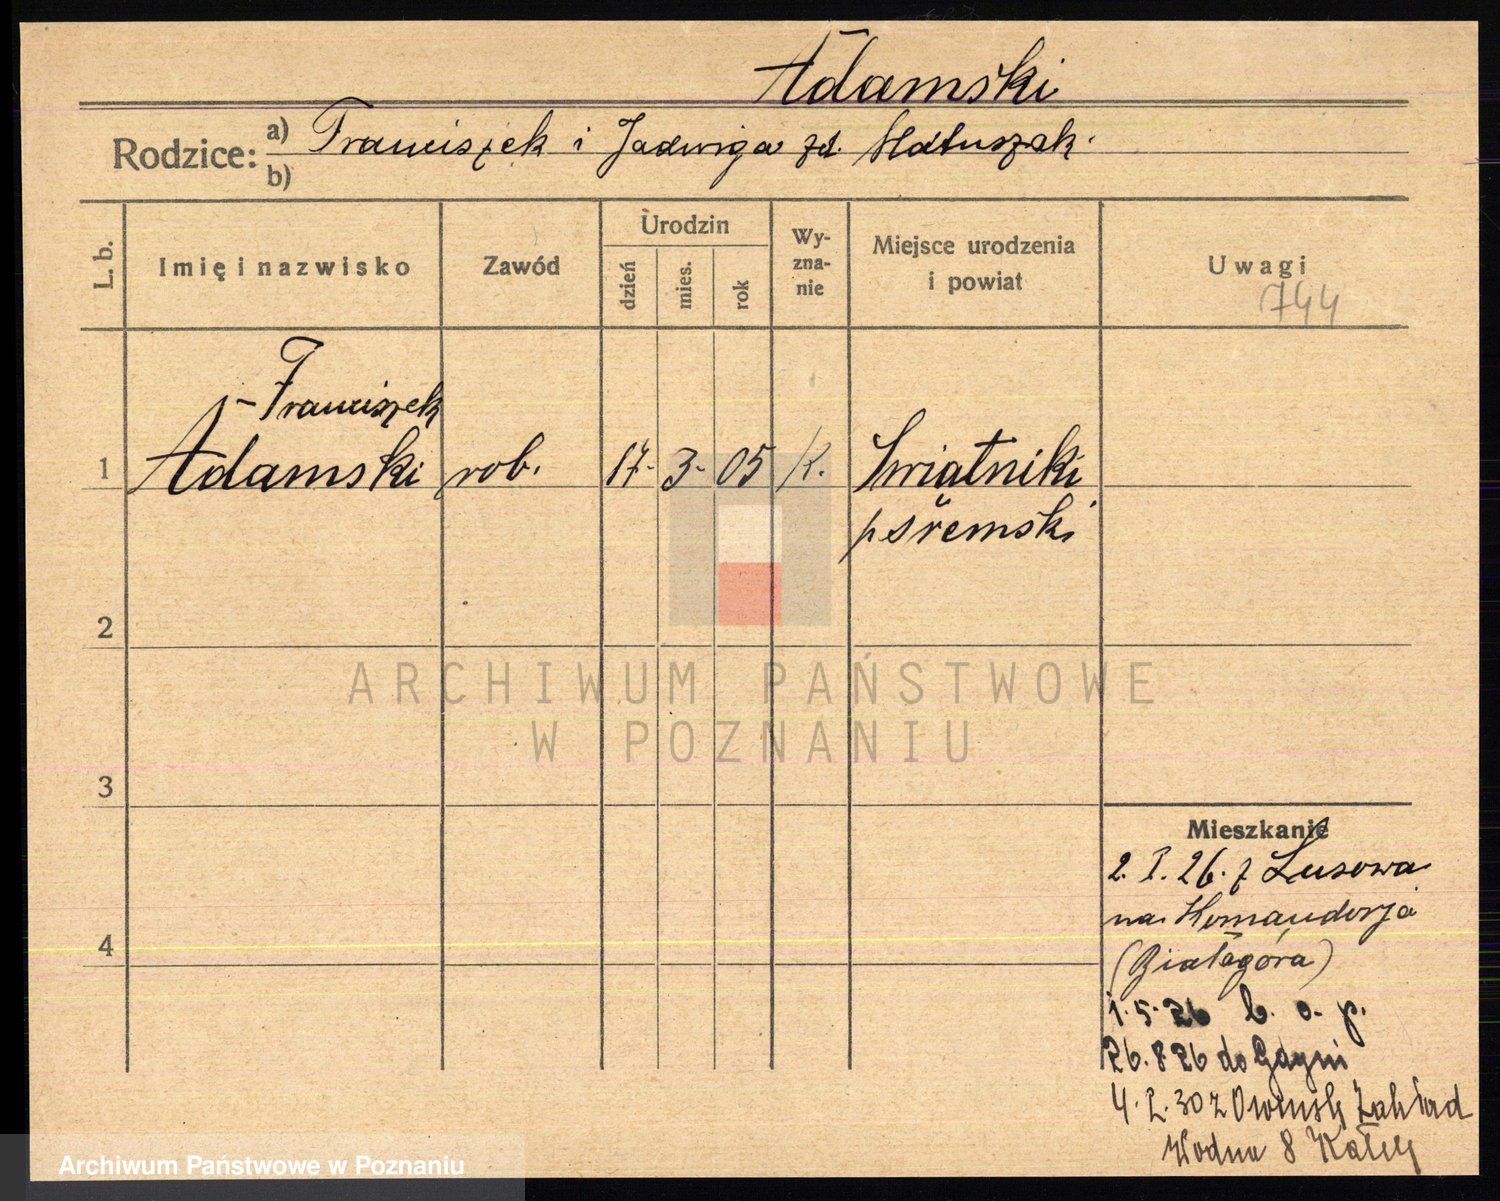 Adamski
Rodzice: a) Franciszek i Jadwiga zd. Matuszak.
b)
L. b.
Imię i nazwisko
Zawód
Urodzin
dzień
mies.
rok
Wy-
zna-
nie
Miejsce urodzenia
i powiat
Uwagi
744
Franciszek
1 Adamski rob. 17. 3. 05 K. Swiątniki
p śremski
2
ARCHIWUM PAŃSTWOWE
W POZNANIU
3
Mieszkanie
2. I. 26. z Lusowa
na Komandorja
4
(Białagóra)
1. 5. 26 b. o. p.
26. 8 26 do Gdyni
4. I. 30 z Owińsk Zakład
Wodna 8
Archiwum Państwowe w Poznaniu